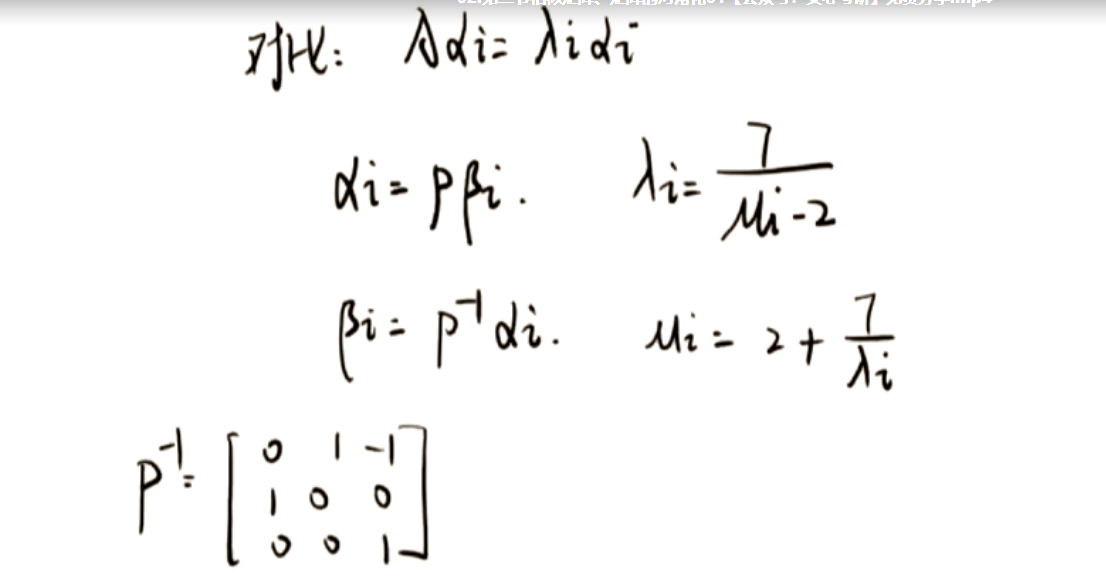 对比: Aαi = λiαi
αi = Pβi. λi = 7/(μi-2)
βi = P⁻¹αi. μi = 2 + 7/λi
P⁻¹ = [0 1 -1
1 0 0
0 0 1]